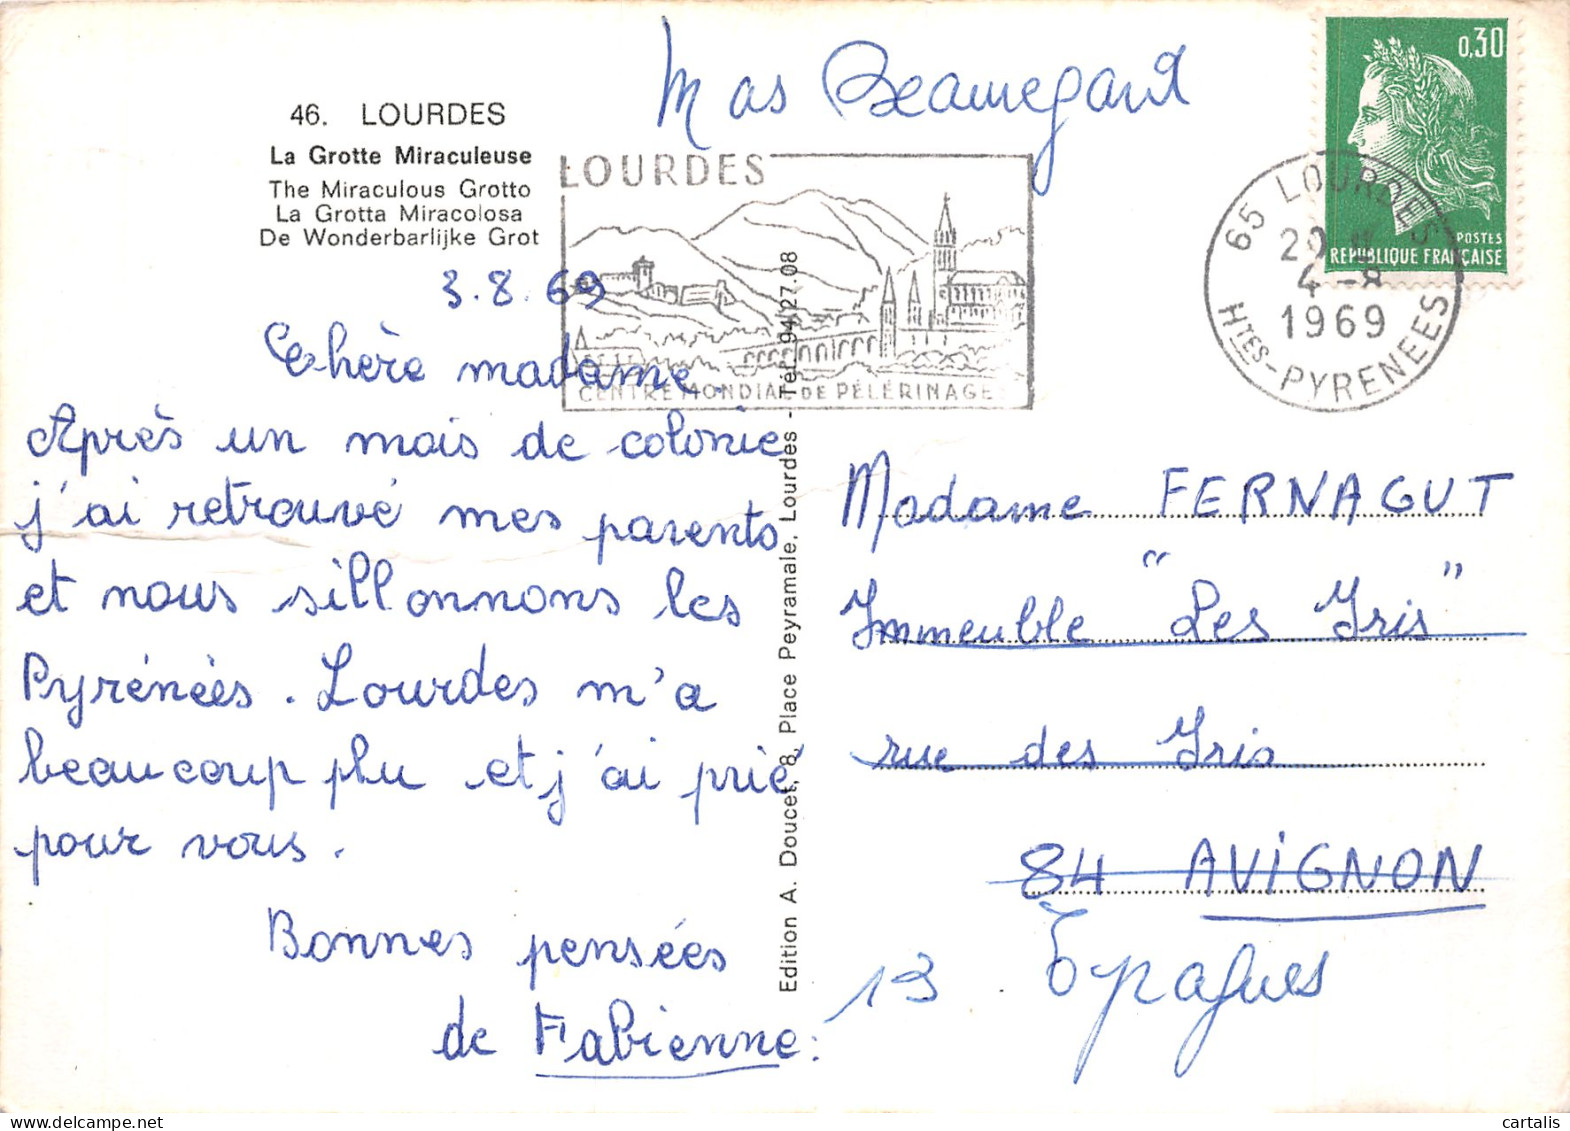 Mas Beauregard
0,30
POSTES
REPUBLIQUE FRANÇAISE
46. LOURDES
La Grotte Miraculeuse
The Miraculous Grotto
La Grotta Miracolosa
De Wonderbarlijke Grot
LOURDES
CENTRE MONDIAL DE PÉLÉRINAGE
65 LOURDES
20 H
4 -8
1969
HTES-PYRENEES
3.8.69
Chère madame.
Après un mois de colonie
j'ai retrouvé mes parents
et nous sillonnons les
Pyrénées. Lourdes m'a
beaucoup plu et j'ai prié
pour vous.
Bonnes pensées
de Fabienne.
Edition A. Doucet, 8, Place Peyramale, Lourdes - Tél. 94/27.08
Madame FERNAGUT
Immeuble "Les Iris"
rue des Iris
84 AVIGNON
13. Eyragues
cartalis
delcampe.net